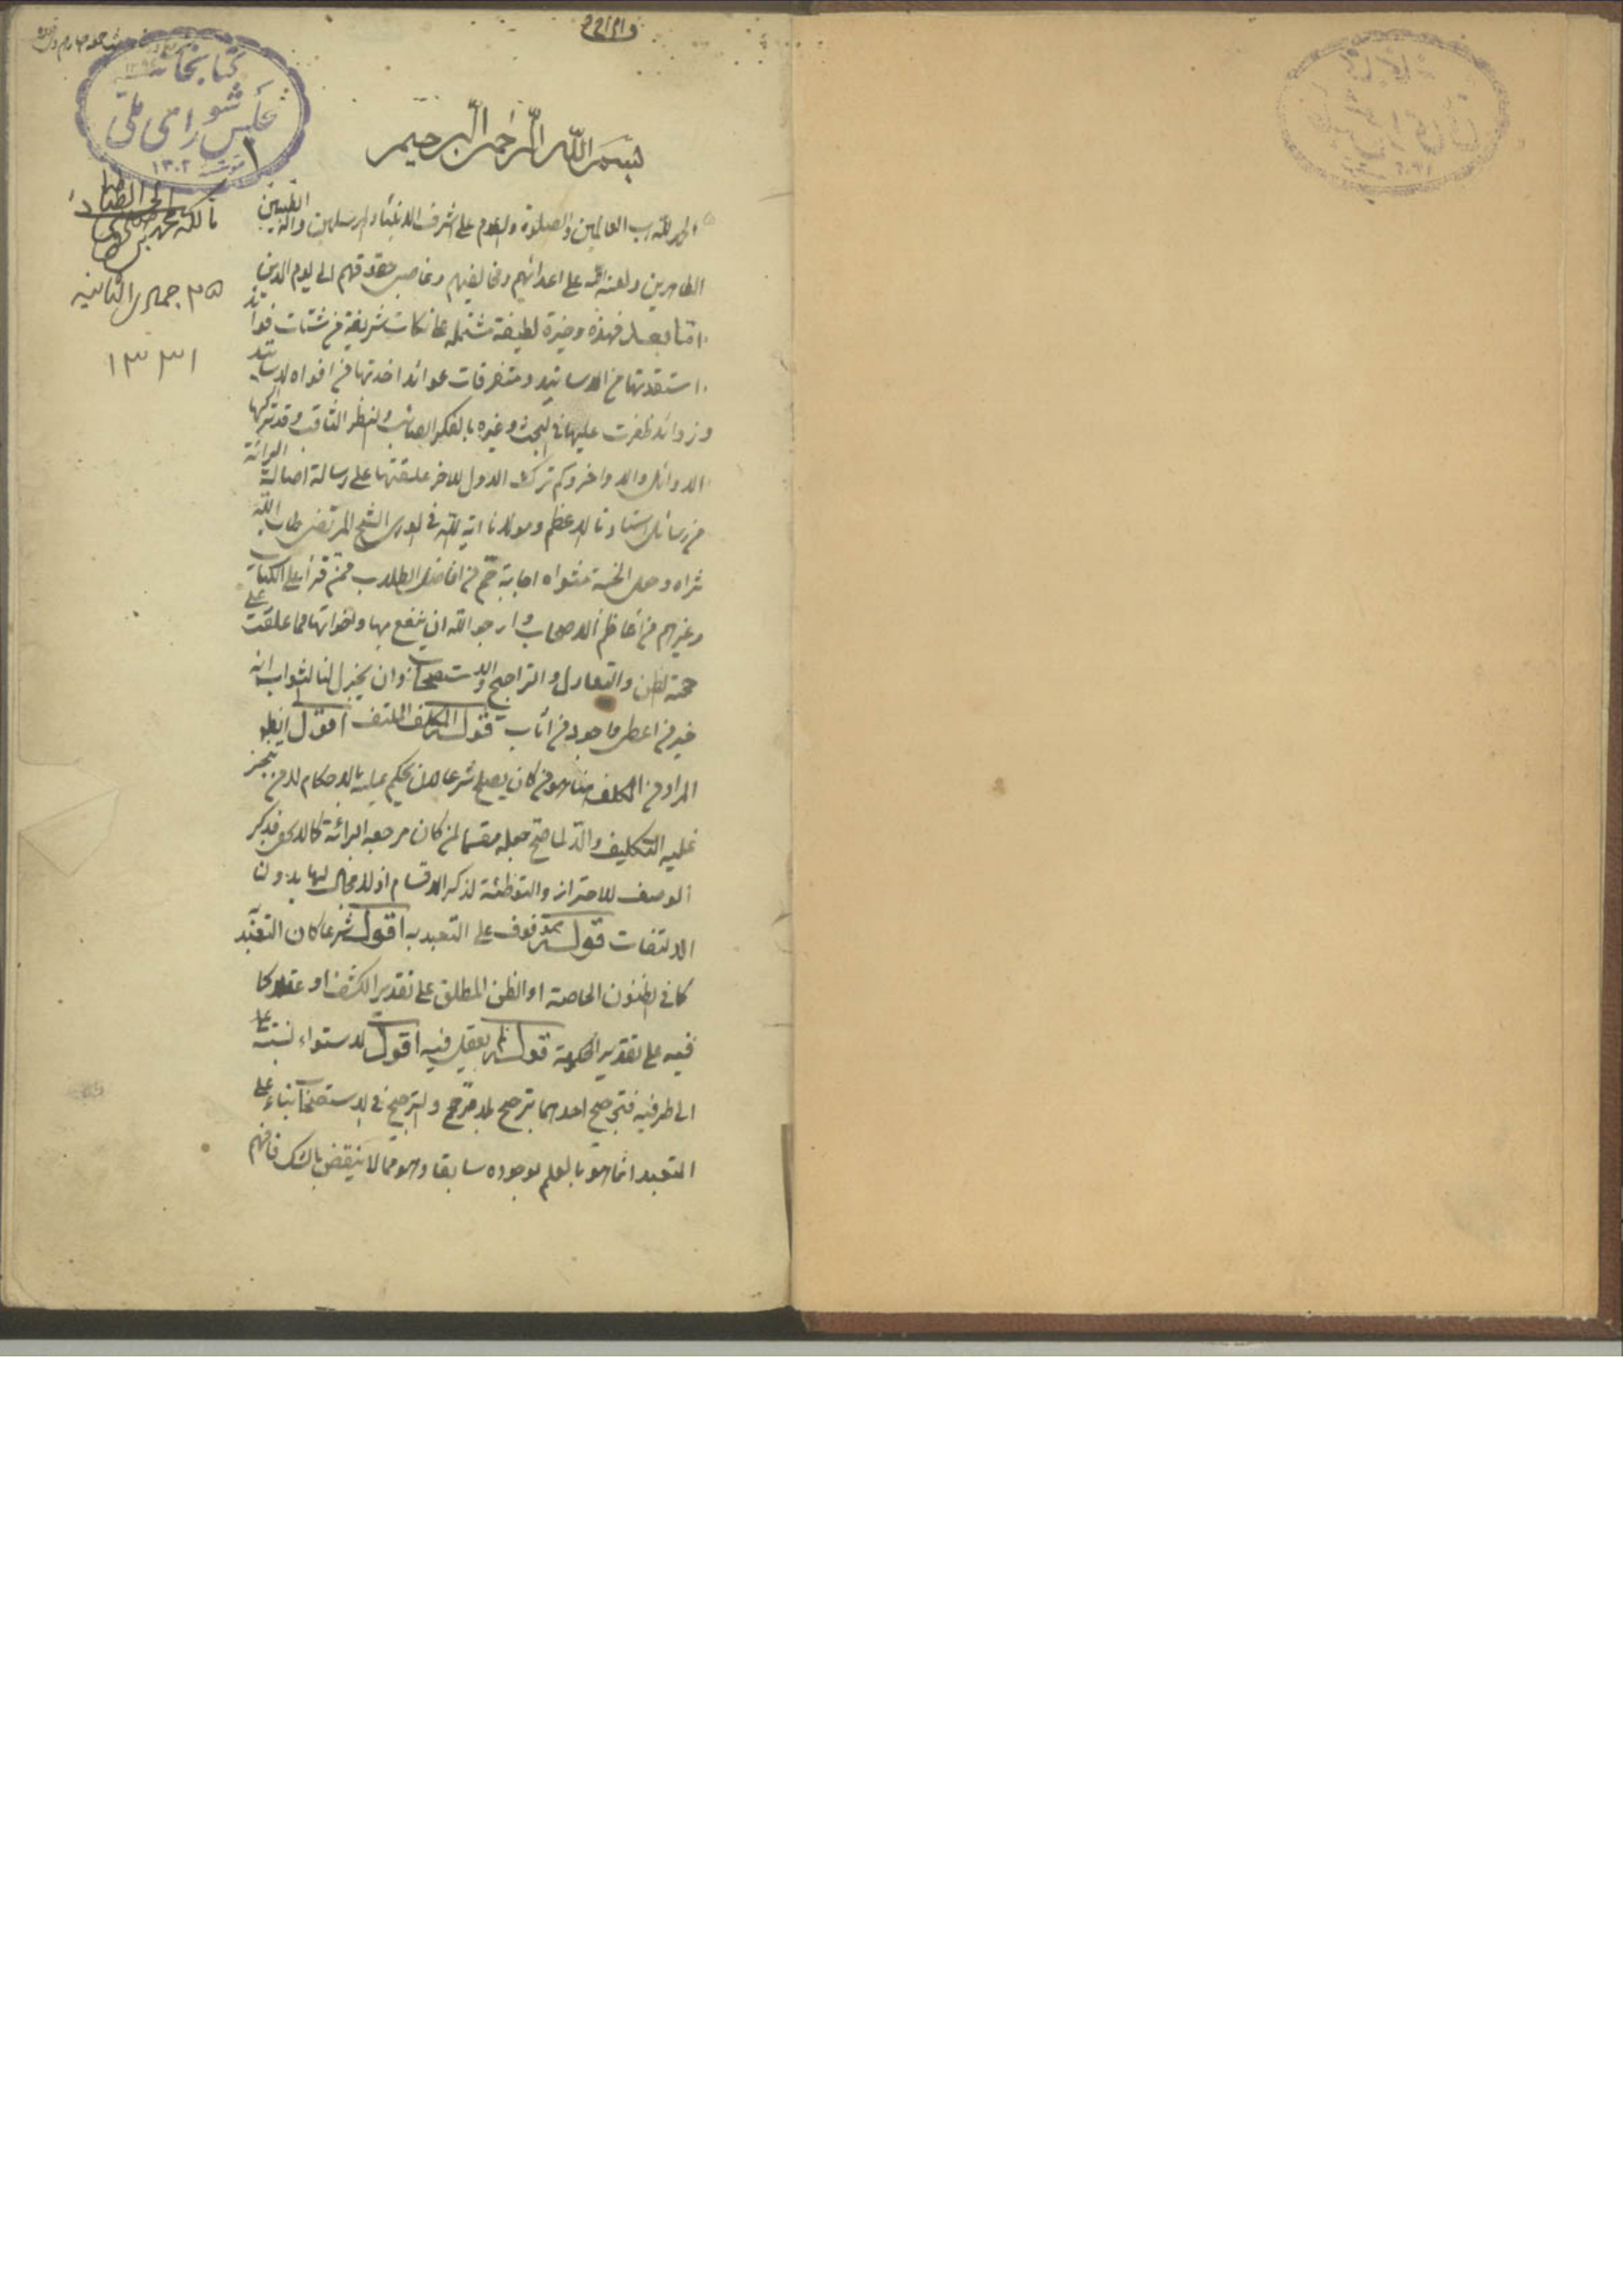 كتابخانه
مجلس شورای ملی
١٣٠٢
بسم الله الرحمن الرحيم
الحمد لله رب العالمين والصلوة والسلام على اشرف الانبياء والمرسلين واله الطيبين
الطاهرين ولعنة الله على اعدائهم ومخالفيهم وغاصبي حقوقهم الى يوم الدين
اما بعد فهذه وجيزة لطيفة مشتملة على نكات شريفة من شتات فوائد
استفدتها من الاساتيد ومتفرقات عوائد اخذتها من افواه الاساتيد
وزوائد ظفرت عليها في البحث وغيره بالفكر الصائب والنظر الثاقب وقد تركها
الاوائل والاواخر وكم ترك الاول للاخر علقتها على رسالة اصالة البرائة
من رسائل استادنا الاعظم ومولانا اية الله في الورى الشيخ المرتضى طاب الله
ثراه وجعل الجنة مثواه اجابة جم من افاضل الطلاب ممن قرأ على الكتاب
وغيرهم من اعاظم الاصحاب وارجو الله ان ينفع بها واخواتها مما علقت على
حجية الظن والتعادل والتراجيح والاستصحاب وان يجزل لنا الثواب انه
خير من اعطى واجود من اثاب قوله المكلف الملتفت اقول
المراد من المكلف هنا هو من كان يصلح شرعا لان يحكم عليه بالاحكام لا من تنجز
عليه التكليف والا لما صح جعله مقسما لمن كان مرجعه البرائة كما لا يخفى فذكر
الوصف للاحتراز والتوطئة لذكر الاقسام اذ لا مجال لها بدون
الالتفات قوله موقوف على التعبد به اقول شرعا كان التعبد
كما في الظنون الخاصة او الظن المطلق على تقدير الكشف او عقلا كما
فيه على تقدير الحكومة قوله لم يعقل فيه اقول لاستواء نسبته
الى طرفيه فترجيح احدهما ترجيح بلا مرجح والترجيح في الاستصحاب بناء على
التعبد انما هو بالعلم بوجوده سابقا وهو مما لا ينقض بالشك فافهم
مالكه محمد
٢٥ جمادى الثانيه
١٣٣١